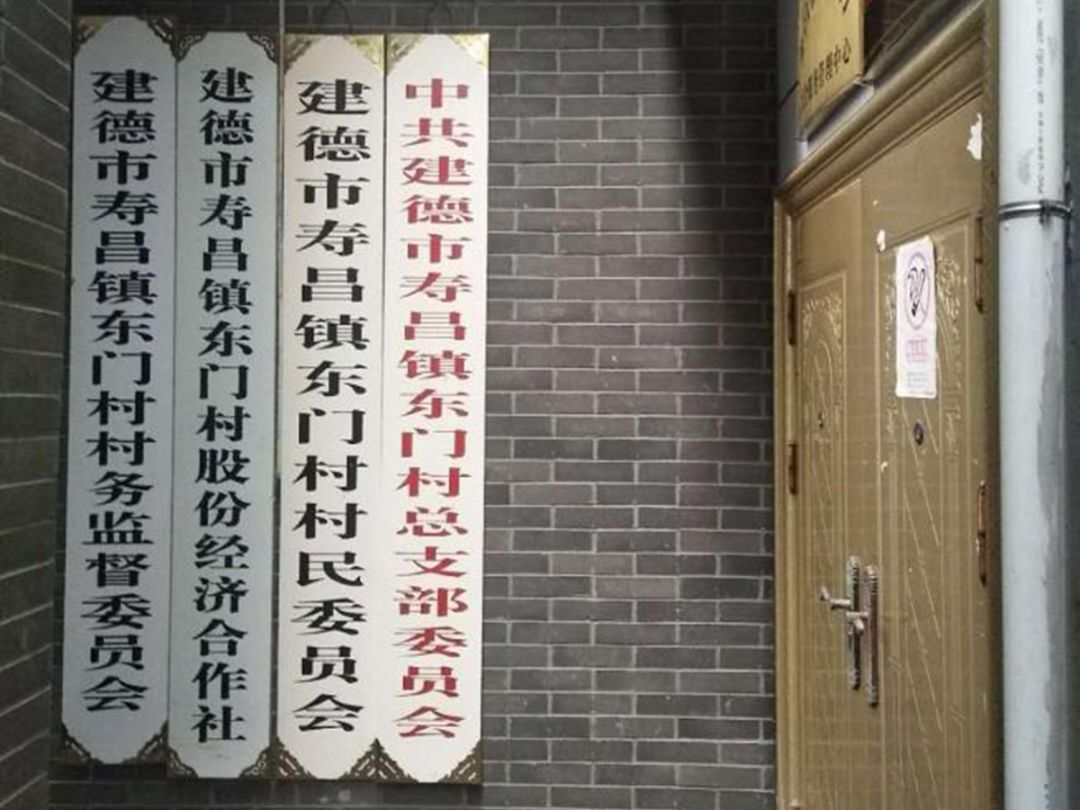 建德市寿昌镇东门村村务监督委员会
建德市寿昌镇东门村股份经济合作社
建德市寿昌镇东门村村民委员会
中共建德市寿昌镇东门村总支部委员会
中心